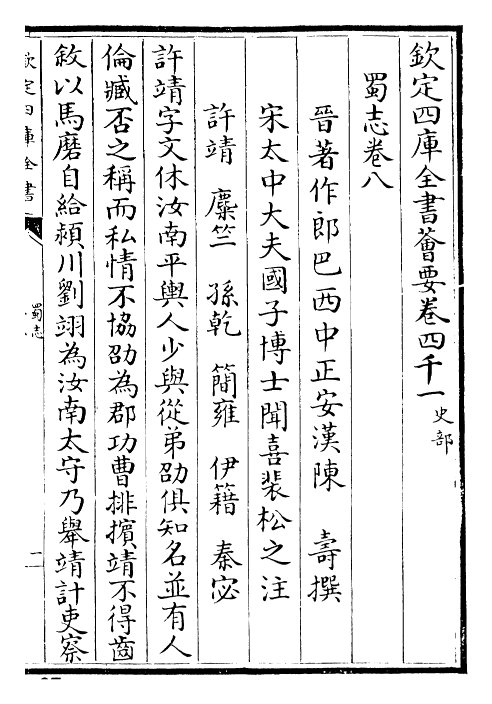 欽定四庫全書薈要卷四千一史部
蜀志卷八
晉著作郎巴西中正安漢陳 壽撰
宋太中大夫國子博士聞喜裴松之注
許靖 麋竺 孫乾 簡雍 伊籍 秦宓
許靖字文休汝南平輿人少與從弟劭俱知名並有人
倫臧否之稱而私情不協劭為郡功曹排擯靖不得齒
敘以馬磨自給潁川劉翊為汝南太守乃舉靖計吏察
欽定四庫全書
蜀志